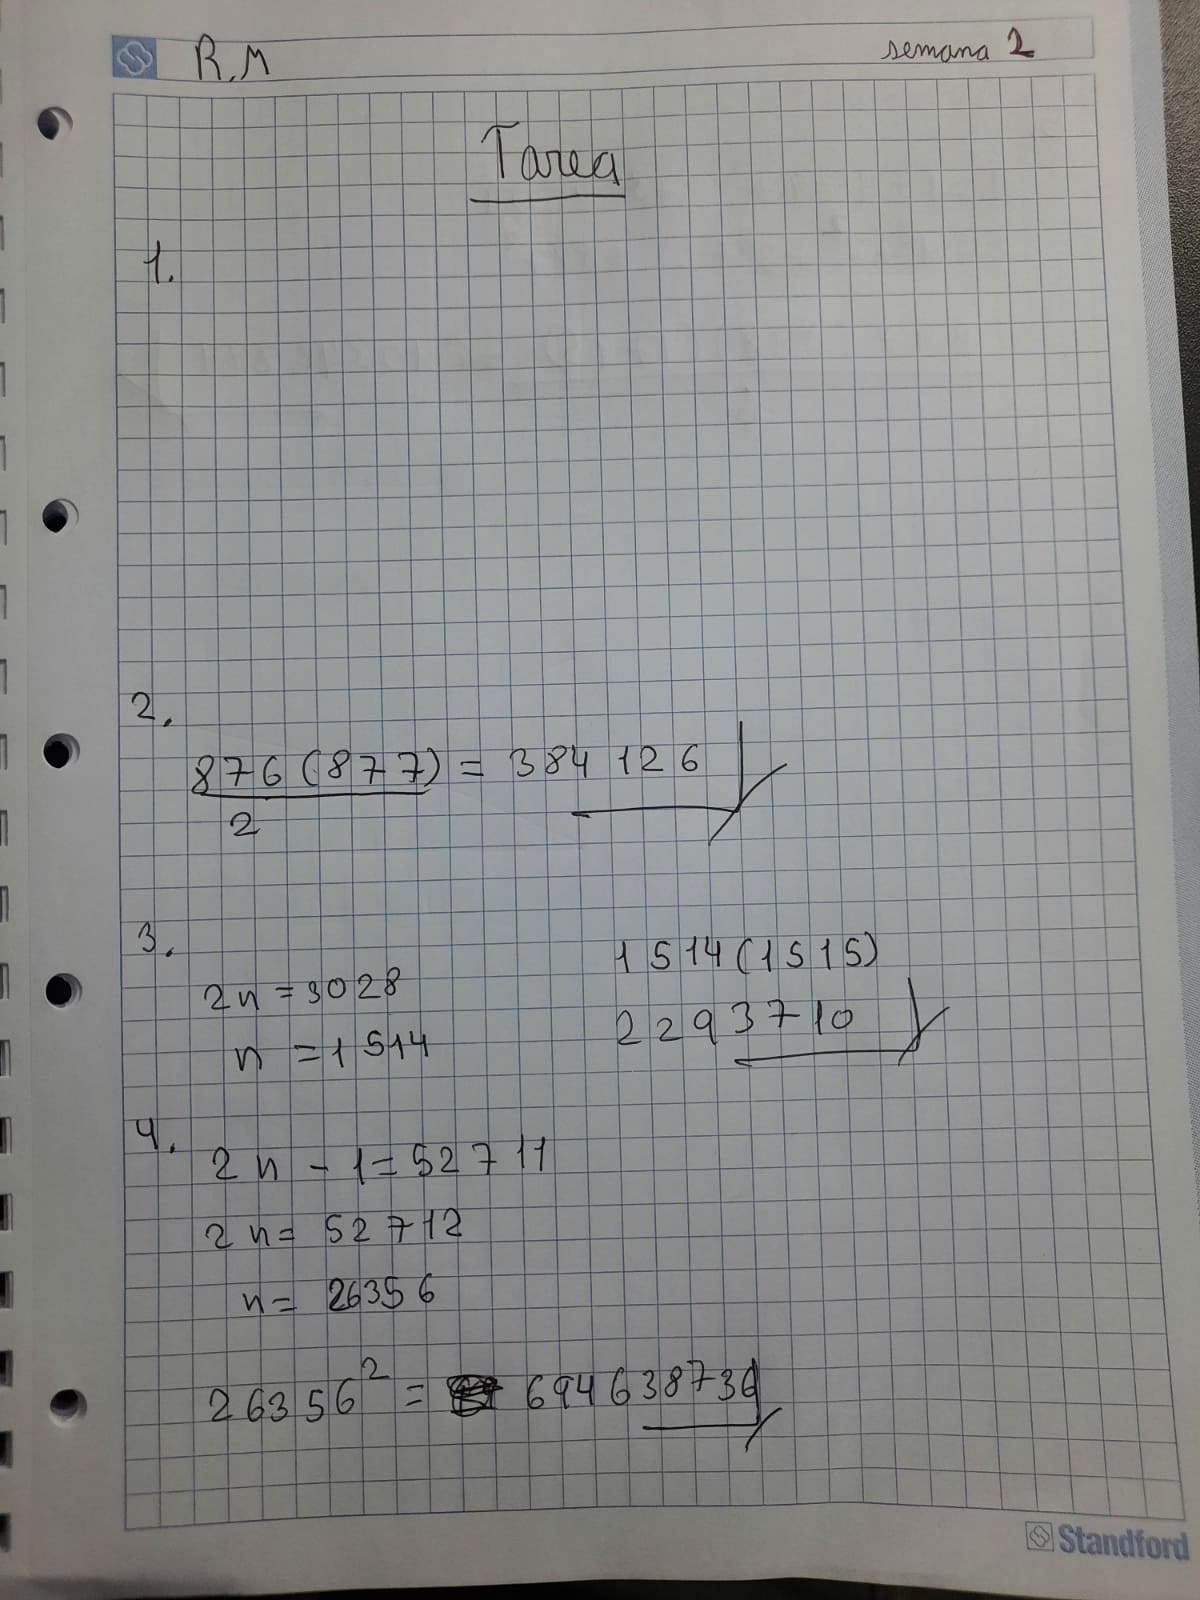 R.M
semana 2
Tarea
1.
2.
876(877) = 384 126
2
3.
2n = 3028
n = 1514
1514(1515)
2293710
4.
2n - 1 = 52711
2n = 52712
n = 26356
26356² = 694638736
Standford